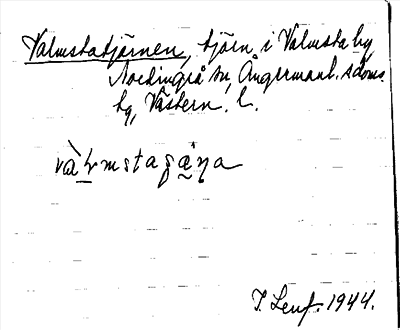 Valmstatjärnen, tjärn i Valmsta by
Nordingrå sn, Ångermanl. s doms.
hg, Västern. l.
I. Leuf. 1944.